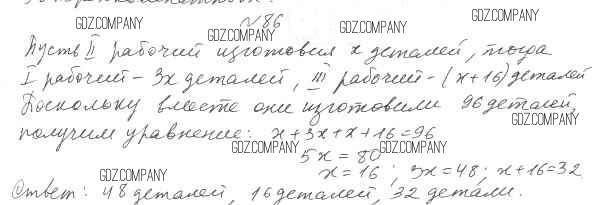 GDZ.COMPANY
№86
GDZ.COMPANY GDZ.COMPANY
Пусть II рабочий изготовил x деталей, тогда
I рабочий - 3x деталей, III рабочий - (x+16) деталей
GDZ.COMPANY GDZ.COMPANY GDZ.COMPANY
Поскольку вместе они изготовили 96 деталей,
получим уравнение: x+3x+x+16=96
GDZ.COMPANY
GDZ.COMPANY GDZ.COMPANY
5x = 80
x = 16 ; 3x = 48; x+16=32
GDZ.COMPANY
Ответ: 48 деталей, 16 деталей, 32 детали.